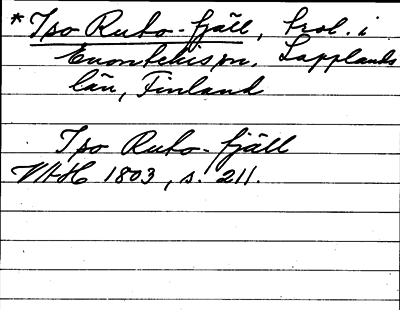 *Iso Ruto-fjäll, trol. i
Enontekis sn. Lapplands
län, Finland
Iso Ruto-fjäll
VAH 1803, s. 211.